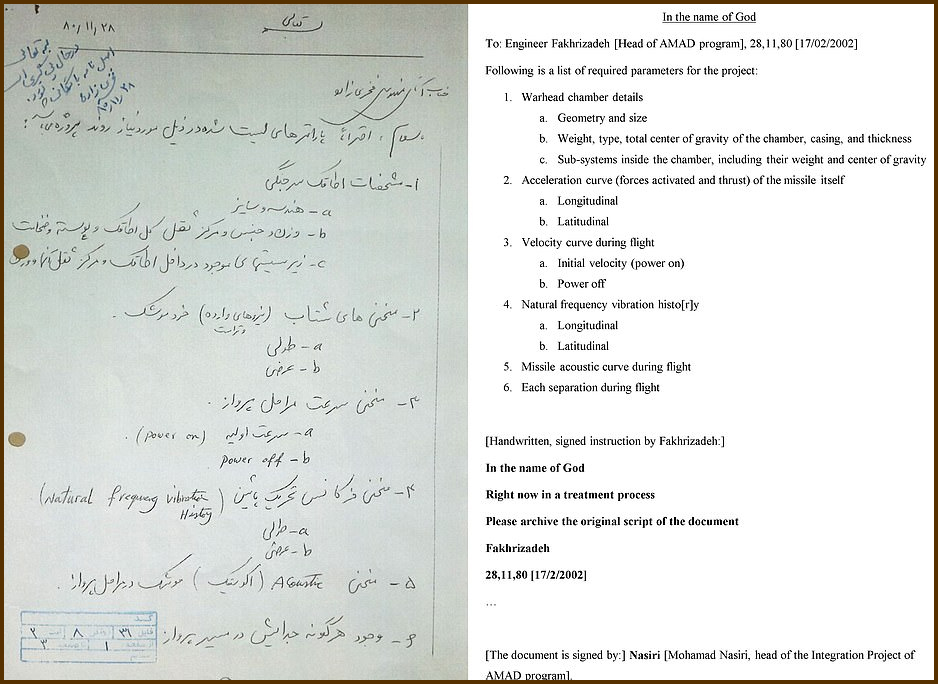 ۸۰/۱۱/۲۸
بسمه تعالی
بسمه تعالی
فخری زاده
۸۰/۱۱/۲۸
جناب آقای مهندس فخری زاده
سلام، احتراماً پارامترهای لیست شده در ذیل مورد نیاز روند پروژه می باشد:
۱- مشخصات اطاقک سرجنگی
a - هندسه و سایز
b - وزن و جنس و مرکز ثقل کل اطاقک و پوسته و ضخامت
c - زیر سیستمهای موجود در داخل اطاقک و مرکز ثقل آنها و وزن
۲- منحنی های شتاب (نیروهای وارده و تراست) خود موشک .
a - طولی
b - عرضی
۳- منحنی سرعت مراحل پرواز .
a - سرعت اولیه (power on) .
b - power off
۴- منحنی فرکانس تحریک (Natural frequency vibration History)
a - طولی
b - عرضی
۵- منحنی Acoustic (اکوستیک) موشک در مراحل پرواز .
۶- وجود هرگونه جدایش در مسیر پرواز
In the name of God
To: Engineer Fakhrizadeh [Head of AMAD program], 28,11,80 [17/02/2002]
Following is a list of required parameters for the project:
1. Warhead chamber details
a. Geometry and size
b. Weight, type, total center of gravity of the chamber, casing, and thickness
c. Sub-systems inside the chamber, including their weight and center of gravity
2. Acceleration curve (forces activated and thrust) of the missile itself
a. Longitudinal
b. Latitudinal
3. Velocity curve during flight
a. Initial velocity (power on)
b. Power off
4. Natural frequency vibration histo[r]y
a. Longitudinal
b. Latitudinal
5. Missile acoustic curve during flight
6. Each separation during flight
[Handwritten, signed instruction by Fakhrizadeh:]
In the name of God
Right now in a treatment process
Please archive the original script of the document
Fakhrizadeh
28,11,80 [17/2/2002]
…
[The document is signed by:] Nasiri [Mohamad Nasiri, head of the Integration Project of
AMAD program].